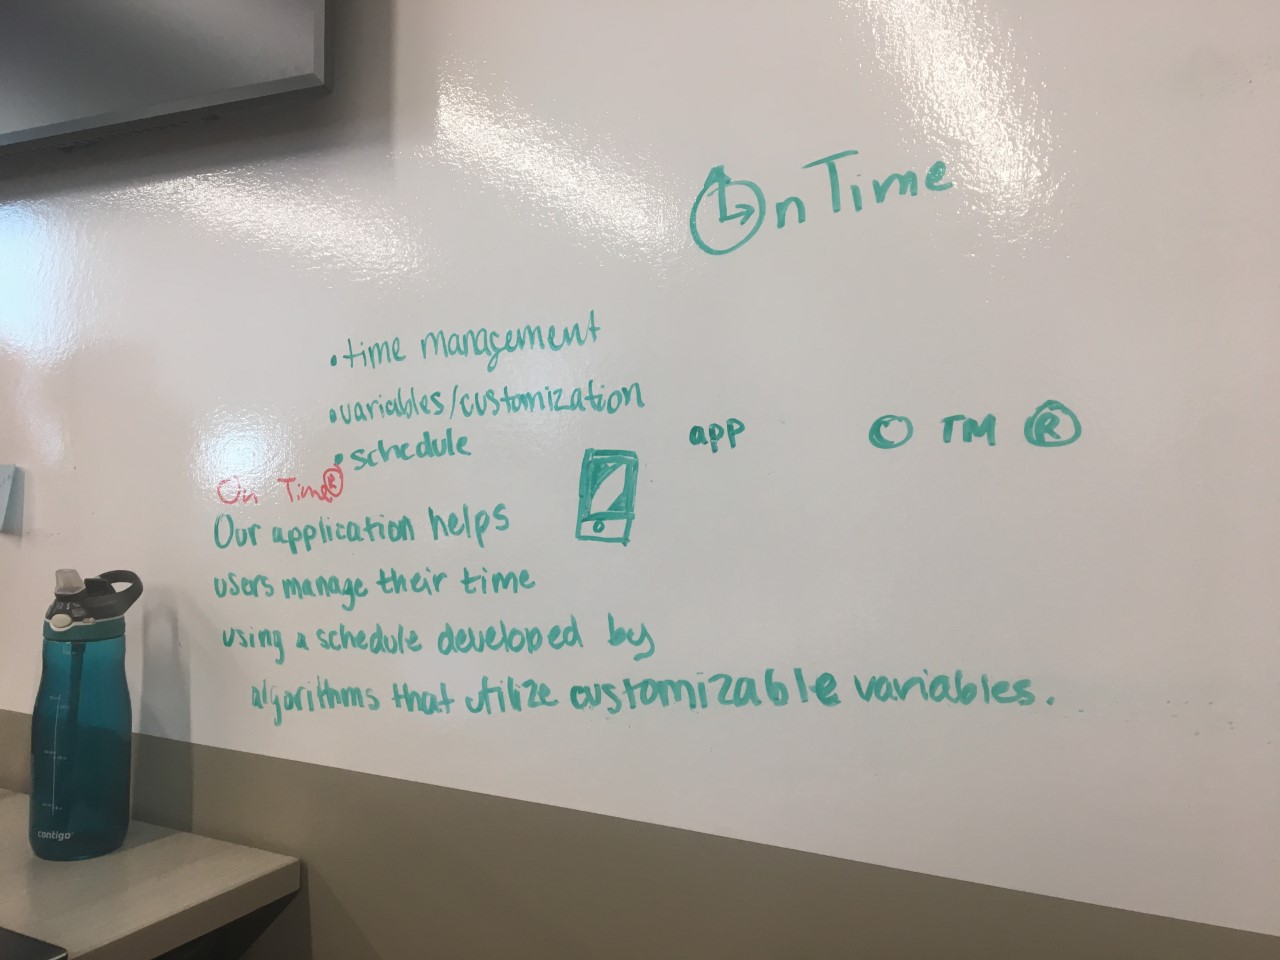 On Time
• time management
• variables/customization
• schedule
app
© TM ®
On Time®
Our application helps
users manage their time
using a schedule developed by
algorithms that utilize customizable variables.
contigo